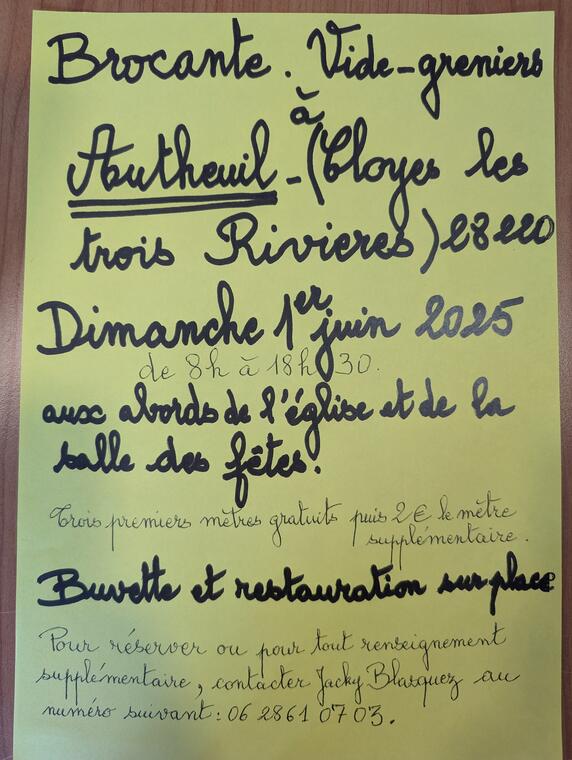 Brocante. Vide-greniers
à
Autheuil - (Cloyes les
trois Rivieres) 28220
Dimanche 1er juin 2025
de 8h à 18h 30.
aux abords de l'église et de la
salle des fêtes.
Trois premiers mètres gratuits puis 2€ le mètre
supplémentaire.
Buvette et restauration sur place
Pour réserver ou pour tout renseignement
supplémentaire, contacter Jacky Blasquez au
numéro suivant : 06 28 61 07 03.